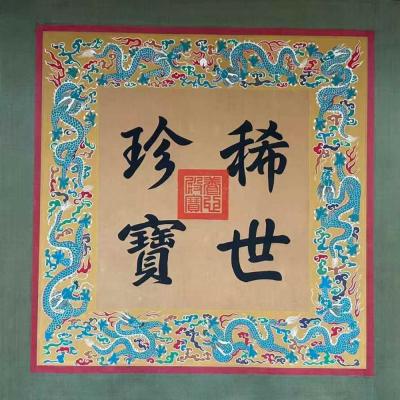 稀世
珍寶